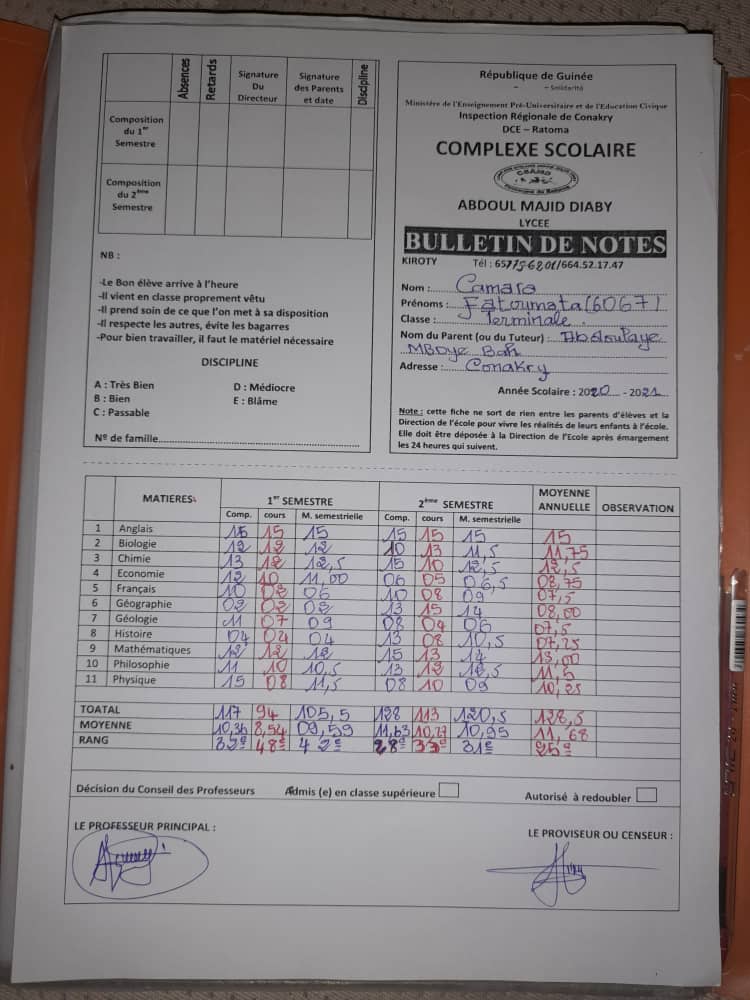 Absences Retards Signature Du Directeur Signature des Parents et date Discipline
Composition du 1er Semestre
Composition du 2ème Semestre
NB :
-Le Bon élève arrive à l'heure
-Il vient en classe proprement vêtu
-Il prend soin de ce que l'on met à sa disposition
-Il respecte les autres, évite les bagarres
-Pour bien travailler, il faut le matériel nécessaire
DISCIPLINE
A : Très Bien D : Médiocre
B : Bien E : Blâme
C : Passable
Nº de famille
République de Guinée
– – Solidarité
Ministère de l'Enseignement Pré-Universitaire et de l'Education Civique
Inspection Régionale de Conakry
DCE – Ratoma
COMPLEXE SCOLAIRE
ABDOUL MAJID DIABY
LYCEE
BULLETIN DE NOTES
KIROTY Tél : /664.52.17.47
Nom : Camara
Prénoms : Fatoumata (6067)
Classe : Terminale.
Nom du Parent (ou du Tuteur) : Abdoulaye
MBDye Bah
Adresse : Conakry
Année Scolaire : 2020 - 2021
Note : cette fiche ne sort de rien entre les parents d'élèves et la
Direction de l'école pour vivre les réalités de leurs enfants à l'école.
Elle doit être déposée à la Direction de l'Ecole après émargement
les 24 heures qui suivent.
MATIERES 1er SEMESTRE 2ème SEMESTRE MOYENNE ANNUELLE OBSERVATION
Comp. cours M. semestrielle Comp. cours M. semestrielle
1 Anglais 15 15 15 15 15 15 15
2 Biologie 12 12 12 10 13 11,5 11,75
3 Chimie 13 12 12,5 15 10 12,5 12,5
4 Economie 12 10 11,00 06 05 06,5 08,75
5 Français 10 02 06 10 08 09 07,5
6 Géographie 02 02 02 13 15 14 08,00
7 Géologie 11 07 09 08 04 06 07,5
8 Histoire 04 04 04 13 08 10,5 07,25
9 Mathématiques 12 12 12 15 13 14 13,00
10 Philosophie 11 10 10,5 13 12 12,5 11,5
11 Physique 15 08 11,5 08 10 09 10,25
TOATAL 117 94 105,5 128 113 120,5 128,5
MOYENNE 10,36 8,54 09,59 11,63 10,27 10,95 11,68
RANG 32e 48e 42e 28e 33e 31e 25e
Décision du Conseil des Professeurs Admis (e) en classe supérieure Autorisé à redoubler
LE PROFESSEUR PRINCIPAL :
LE PROVISEUR OU CENSEUR :